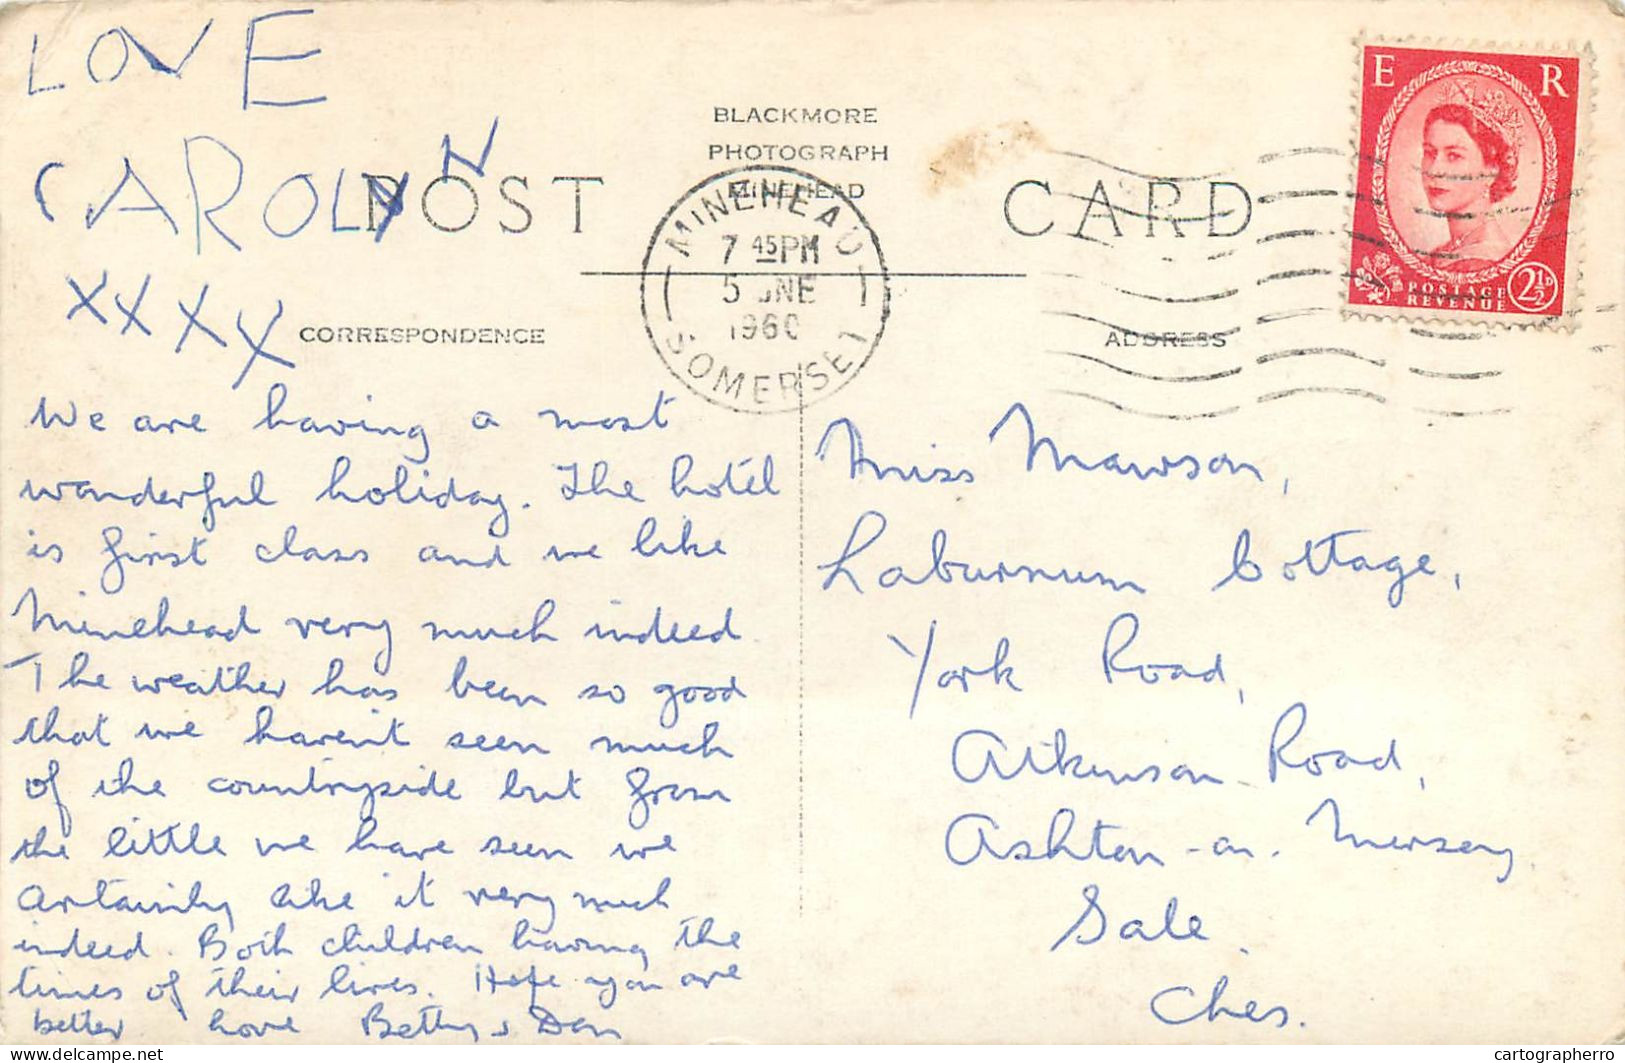 LOVE
CAROLYN
XXXX
BLACKMORE
PHOTOGRAPH
MINEHEAD
POST CARD
CORRESPONDENCE
ADDRESS
MINEHEAD
7 45PM
5 JNE
1960
SOMERSET
E R
POSTAGE
REVENUE
2½D
We are having a most
wonderful holiday. The hotel
is first class and we like
Minehead very much indeed.
The weather has been so good
that we haven't seen much
of the countryside but from
the little we have seen we
certainly like it very much
indeed. Both children having the
times of their lives. Hope you are
better love Betty & Don
Miss Mawson,
Laburnum Cottage,
York Road,
Atkinson Road,
Ashton-on-Mersey.
Sale.
Ches.
Delcampe.net
cartographerro